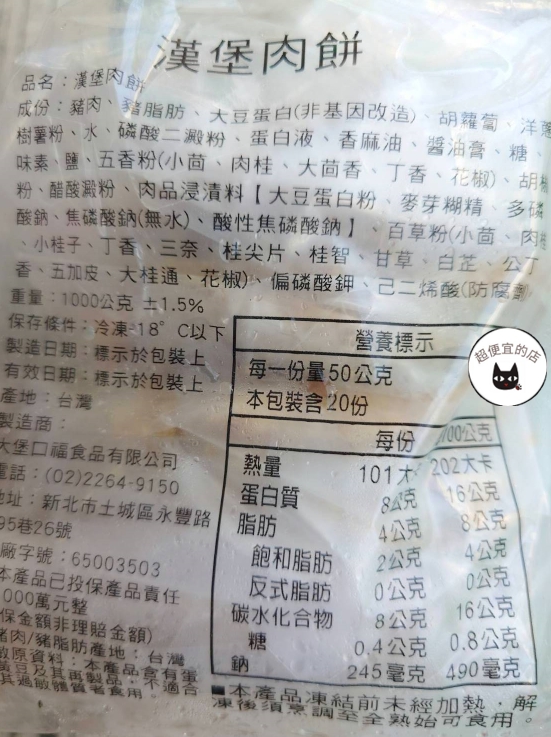 漢堡肉餅
品名：漢堡肉餅
成份：豬肉、豬脂肪、大豆蛋白(非基因改造)、胡蘿蔔、洋蔥
樹薯粉、水、磷酸二澱粉、蛋白液、香麻油、醬油膏、糖、
味素、鹽、五香粉(小茴、肉桂、大茴香、丁香、花椒)、胡椒
粉、醋酸澱粉、肉品浸漬料【大豆蛋白粉、麥芽糊精、多磷
酸鈉、焦磷酸鈉(無水)、酸性焦磷酸鈉】、百草粉(小茴、肉桂
、小桂子、丁香、三奈、桂尖片、桂智、甘草、白芷、公丁
香、五加皮、大桂通、花椒)、偏磷酸鉀、己二烯酸(防腐劑
重量：1000公克 ±1.5%
保存條件：冷凍-18°C以下
製造日期：標示於包裝上
有效日期：標示於包裝上
產地：台灣
製造商：
大堡口福食品有限公司
電話：(02)2264-9150
地址：新北市土城區永豐路
95巷26號
廠字號：65003503
本產品已投保產品責任
000萬元整
保金額非理賠金額)
豬肉/豬脂肪產地：台灣
敏原資料：本產品含有蛋
黃豆及其再製品：不適合
其過敏體質者食用
營養標示
每一份量50公克
本包裝含20份
每份 100公克
熱量 101大卡 202大卡
蛋白質 8公克 16公克
脂肪 4公克 8公克
飽和脂肪 2公克 4公克
反式脂肪 0公克 0公克
碳水化合物 8公克 16公克
糖 0.4公克 0.8公克
鈉 245毫克 490毫克
■本產品凍結前未經加熱，解
凍後須烹調至全熟始可食用。
超便宜的店